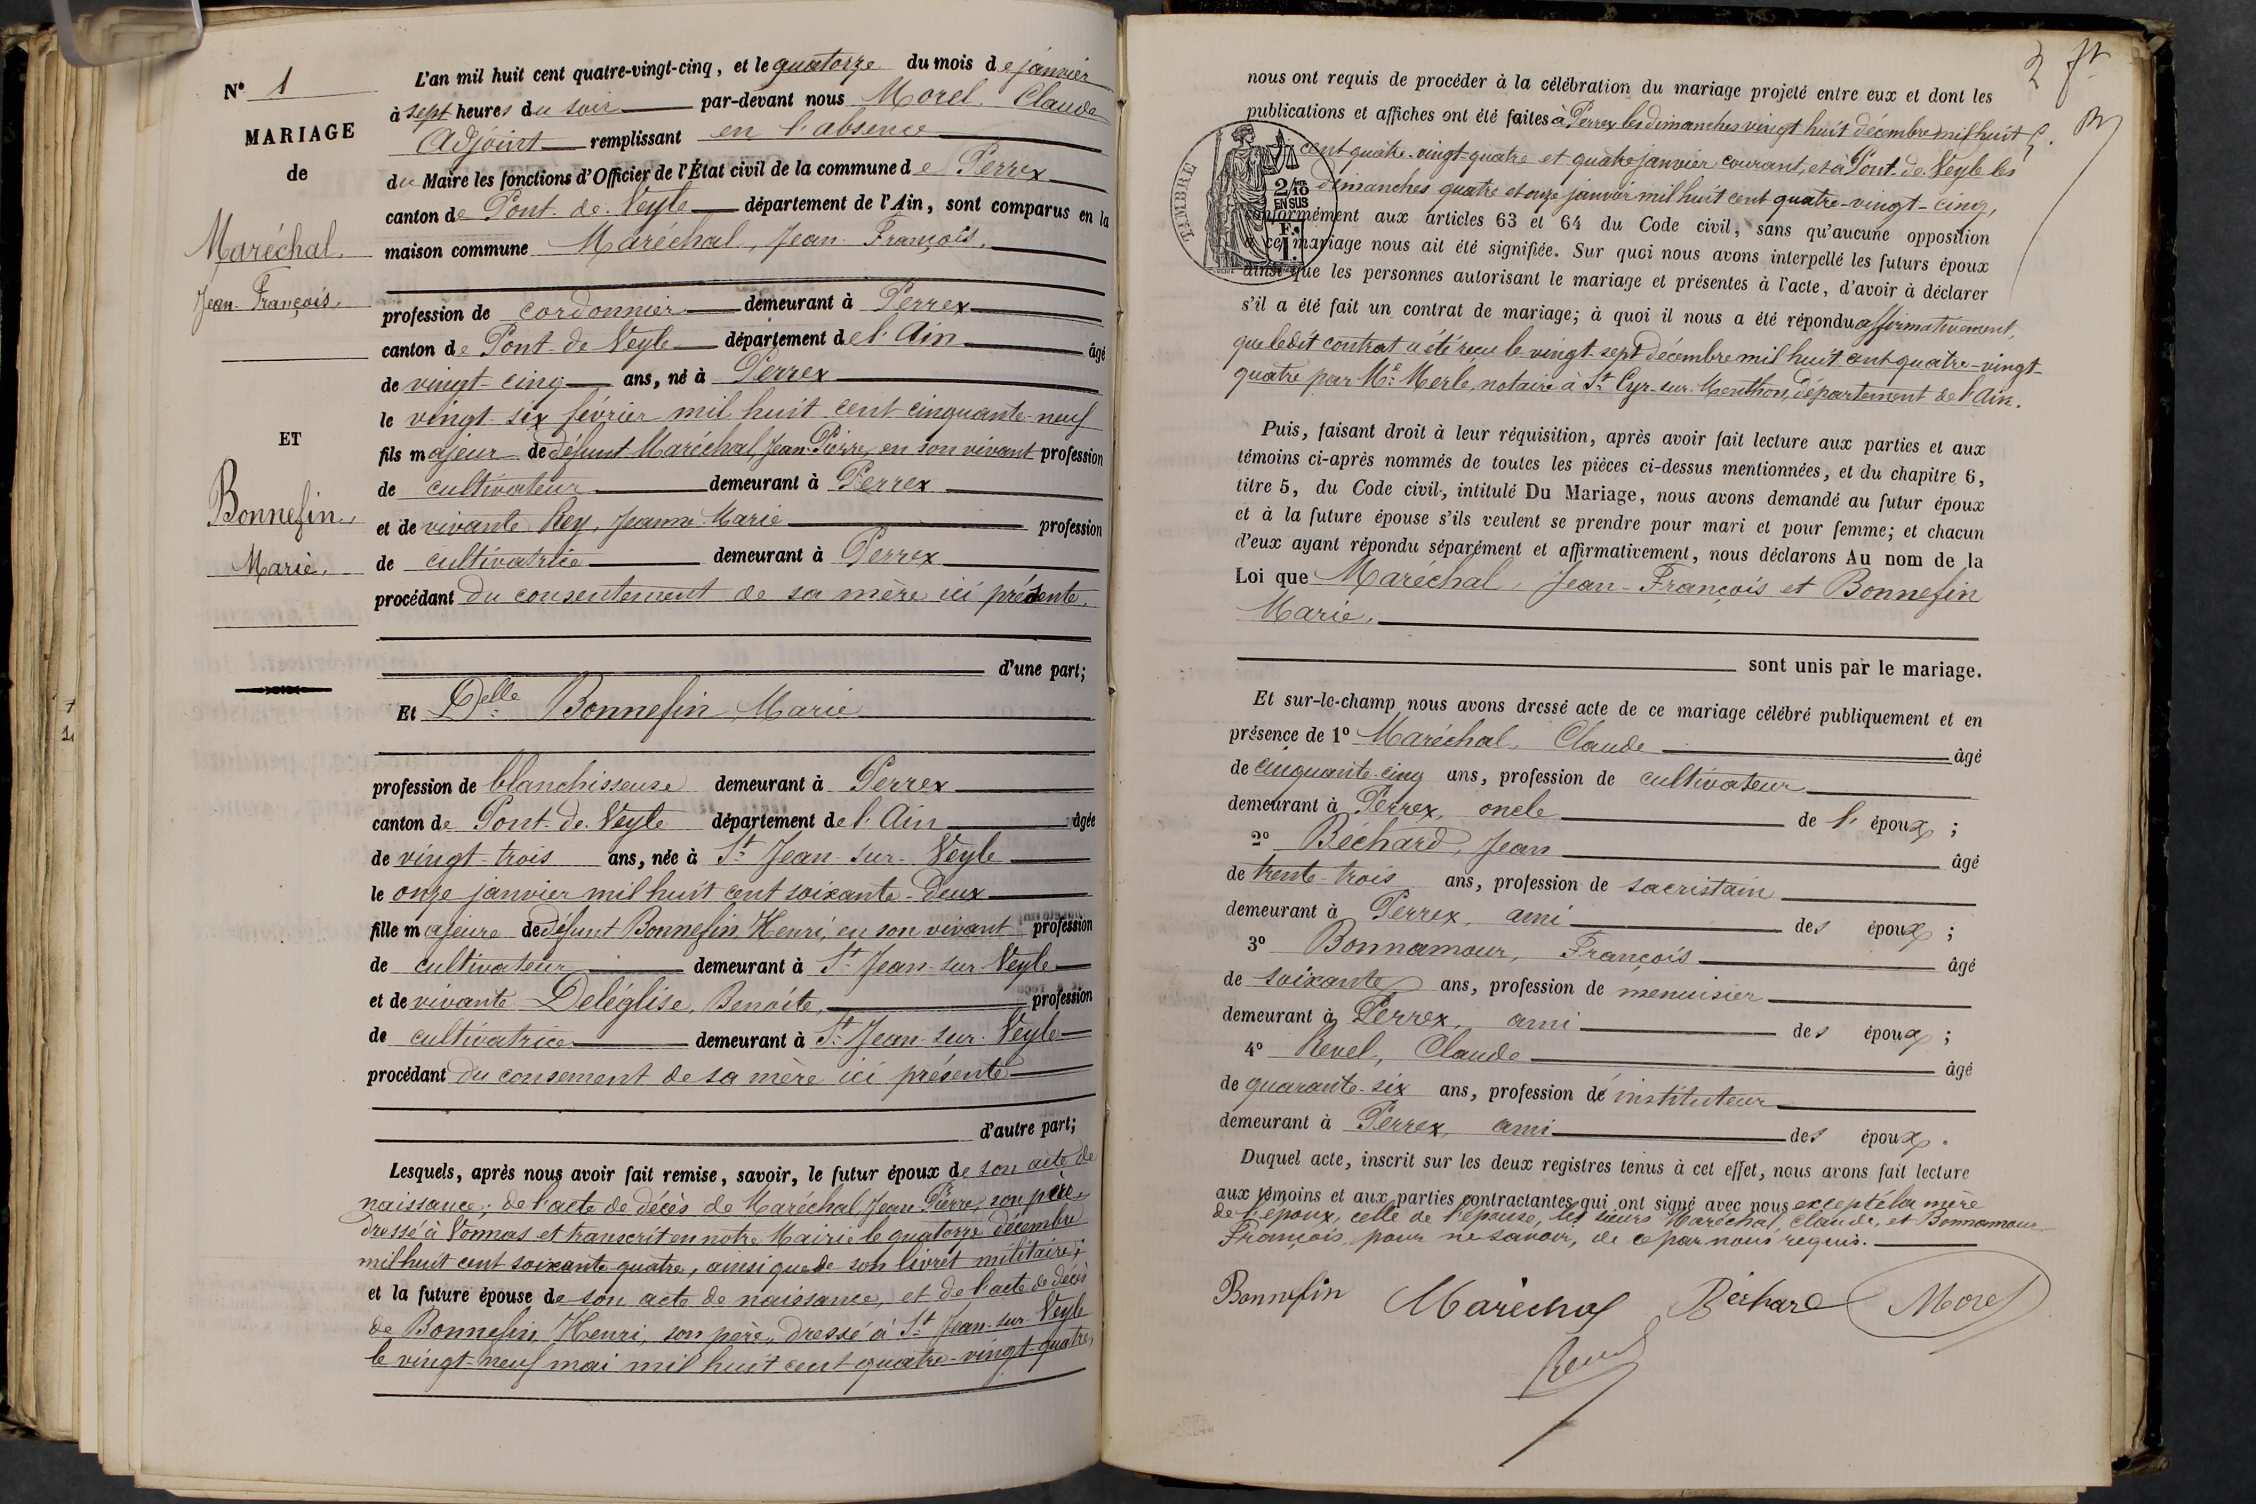 N° 1
MARIAGE
de
Maréchal,
Jean-François,
ET
Bonnefin,
Marie,
L'an mil huit cent quatre-vingt-cinq, et le quatorze du mois de janvier
à sept heures du soir par-devant nous Morel, Claude
Adjoint remplissant en l'absence
du Maire les fonctions d'Officier de l'État civil de la commune de Perrex
canton de Pont-de-Veyle département de l'Ain, sont comparus en la
maison commune Maréchal, Jean-François,
profession de cordonnier demeurant à Perrex
canton de Pont-de-Veyle département de l'Ain âgé
de vingt-cinq ans, né à Perrex
le vingt-six février mil huit cent cinquante-neuf
fils majeur de défunt Maréchal, Jean-Pierre, en son vivant profession
de cultivateur demeurant à Perrex
et de vivante Rey, Jeanne-Marie profession
de cultivatrice demeurant à Perrex
procédant du consentement de sa mère ici présente,
d'une part;
Et Delle Bonnefin, Marie
profession de blanchisseuse demeurant à Perrex
canton de Pont-de-Veyle département de l'Ain âgée
de vingt-trois ans, née à St Jean-sur-Veyle
le onze janvier mil huit cent soixante-deux
fille majeure de défunt Bonnefin, Henri, en son vivant profession
de cultivateur demeurant à St Jean-sur-Veyle
et de vivante Deléglise, Benoite, profession
de cultivatrice demeurant à St Jean-sur-Veyle
procédant du consement de sa mère ici présente
d'autre part;
Lesquels, après nous avoir fait remise, savoir, le futur époux de son acte de
naissance; de l'acte de décès de Maréchal Jean-Pierre, son père
dressé à Vonnas et transcrit en notre Mairie le quatorze décembre
mil huit cent soixante-quatre, ainsi que de son livret militaire;
et la future épouse de son acte de naissance, et de l'acte de décès
de Bonnefin Henri, son père, dressé à St Jean-sur-Veyle
le vingt-neuf mai mil huit cent quatre-vingt-quatre,
nous ont requis de procéder à la célébration du mariage projeté entre eux et dont les
publications et affiches ont été faites à Perrex les dimanches vingt huit décembre mil huit
cent quatre-vingt-quatre et quatre janvier courant, et à Pont-de-Veyle les
dimanches quatre et onze janvier mil huit cent quatre-vingt-cinq,
conformément aux articles 63 et 64 du Code civil, sans qu'aucune opposition
à ce mariage nous ait été signifiée. Sur quoi nous avons interpellé les futurs époux
ainsi que les personnes autorisant le mariage et présentes à l'acte, d'avoir à déclarer
s'il a été fait un contrat de mariage; à quoi il nous a été répondu affirmativement,
que ledit contrat a été reçu le vingt-sept décembre mil huit cent quatre-vingt-
quatre par Me Merle, notaire à St Cyr-sur-Menthon, département de l'Ain.
TIMBRE
2/10 EN SUS
F. 1.
Puis, faisant droit à leur réquisition, après avoir fait lecture aux parties et aux
témoins ci-après nommés de toutes les pièces ci-dessus mentionnées, et du chapitre 6,
titre 5, du Code civil, intitulé Du Mariage, nous avons demandé au futur époux
et à la future épouse s'ils veulent se prendre pour mari et pour femme; et chacun
d'eux ayant répondu séparément et affirmativement, nous déclarons Au nom de la
Loi que Maréchal, Jean-François et Bonnefin
Marie,
sont unis par le mariage.
Et sur-le-champ nous avons dressé acte de ce mariage célébré publiquement et en
présence de 1° Maréchal, Claude âgé
de cinquante-cinq ans, profession de cultivateur
demeurant à Perrex, oncle de l' époux;
2° Béchard, Jean âgé
de trente-trois ans, profession de sacristain
demeurant à Perrex, ami des époux;
3° Bonnamour, François âgé
de soixante ans, profession de menuisier
demeurant à Perrex, ami des époux;
4° Revel, Claude âgé
de quarante-six ans, profession d'instituteur
demeurant à Perrex, ami des époux.
Duquel acte, inscrit sur les deux registres tenus à cet effet, nous avons fait lecture
aux témoins et aux parties contractantes qui ont signé avec nous excepté la mère
de l'époux, celle de l'épouse, les sieurs Maréchal, Claude, et Bonnamour
François pour ne savoir, de ce par nous requis.
Bonnefin Maréchal Béchard Morel
Revel